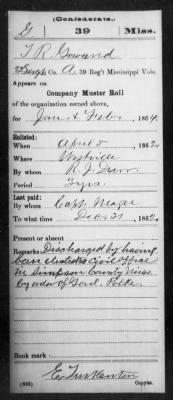 (Confederate.)
G 39 Miss.
T. R. Gowand
Sergt, Co. A, 39 Reg't Mississippi Vols
Appears on
Company Muster Roll
of the organization named above,
for Jan & Feb, 1864.
Enlisted:
When April 5, 1862.
Where Westville
By whom R. J. Durr
Period 3 yrs.
Last paid:
By whom Capt. Magee
To what time Dec 31, 1862.
Present or absent
Remarks: Discharged by having
been elected a civil office
in Simpson County Miss.
by order of Genl. Polk.
Book mark:
(642) Copyist.